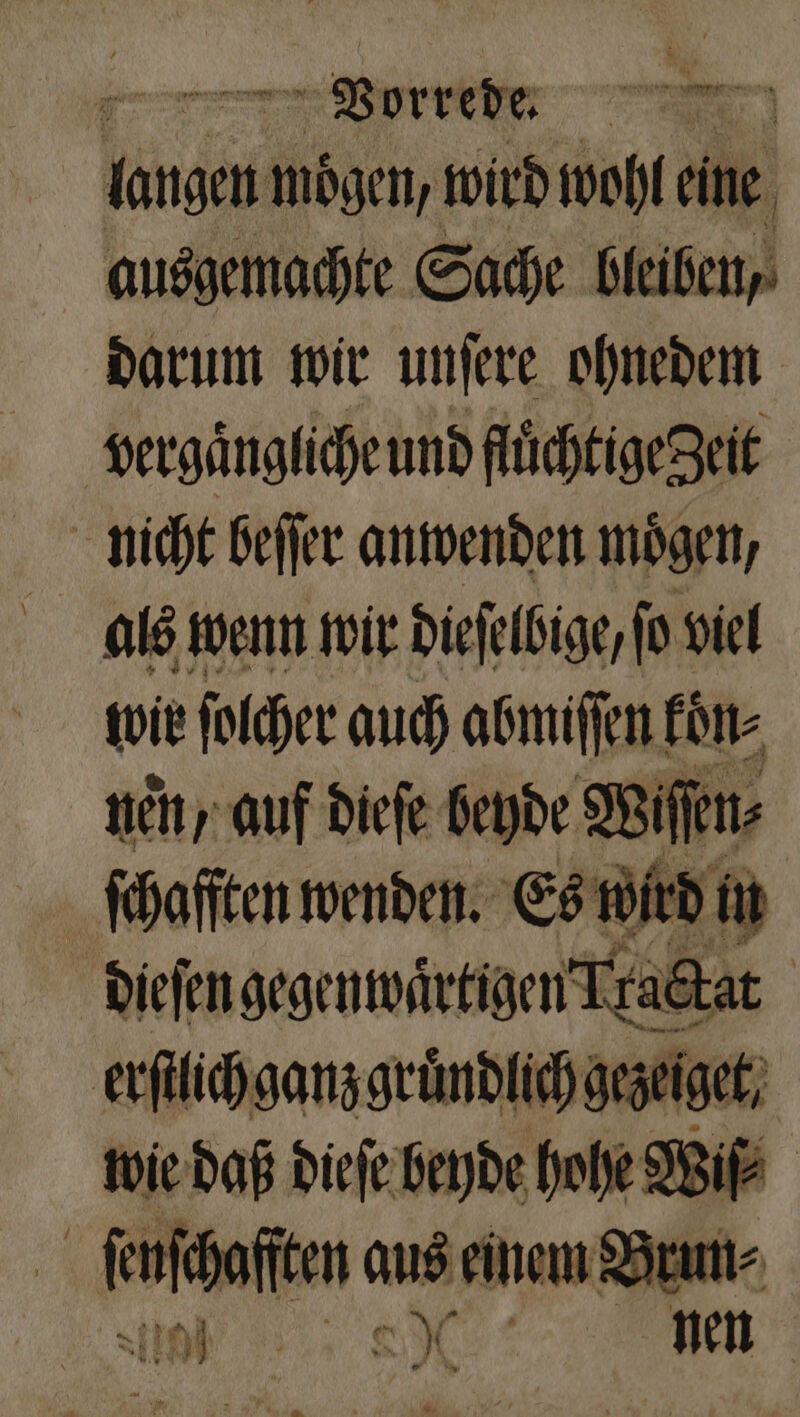 Vorrede.
langen moͤgen, wird wohl eine
ausgemachte Sache bleiben,
darum wir unſere ohnedem
vergaͤngliche und fluͤchtige Zeit
nicht beſſer anwenden moͤgen,
als wenn wir dieſelbige, ſo viel
wir ſolcher auch abmiſſen koͤn⸗
nen, auf dieſe beyde Wiſſen⸗
ſchafften wenden. Es wird in
dieſen gegenwaͤrtigen Tractat
erſtlich ganz gruͤndlich gezeiget,
wie daß dieſe beyde hohe Wiſ⸗
ſenſchafften aus einem Brun⸗
nen